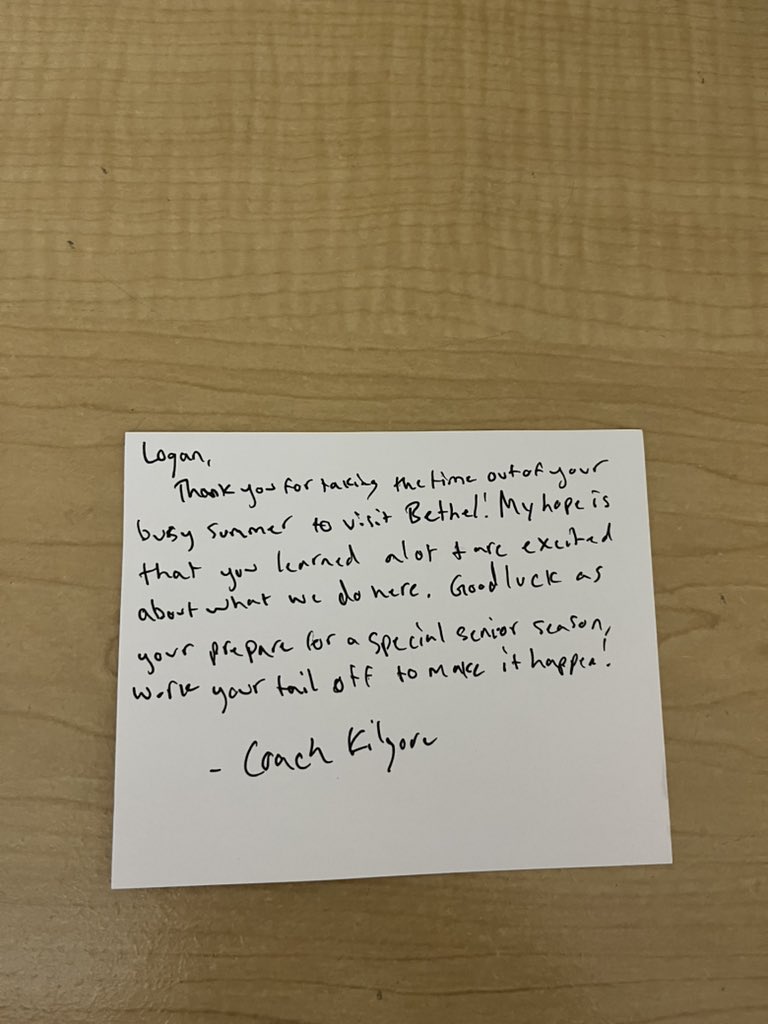 Logan,
Thank you for taking the time out of your
busy summer to visit Bethel! My hope is
that you learned alot + are excited
about what we do here. Good luck as
your prepare for a special senior season,
work your tail off to make it happen!
- Coach Kilgore